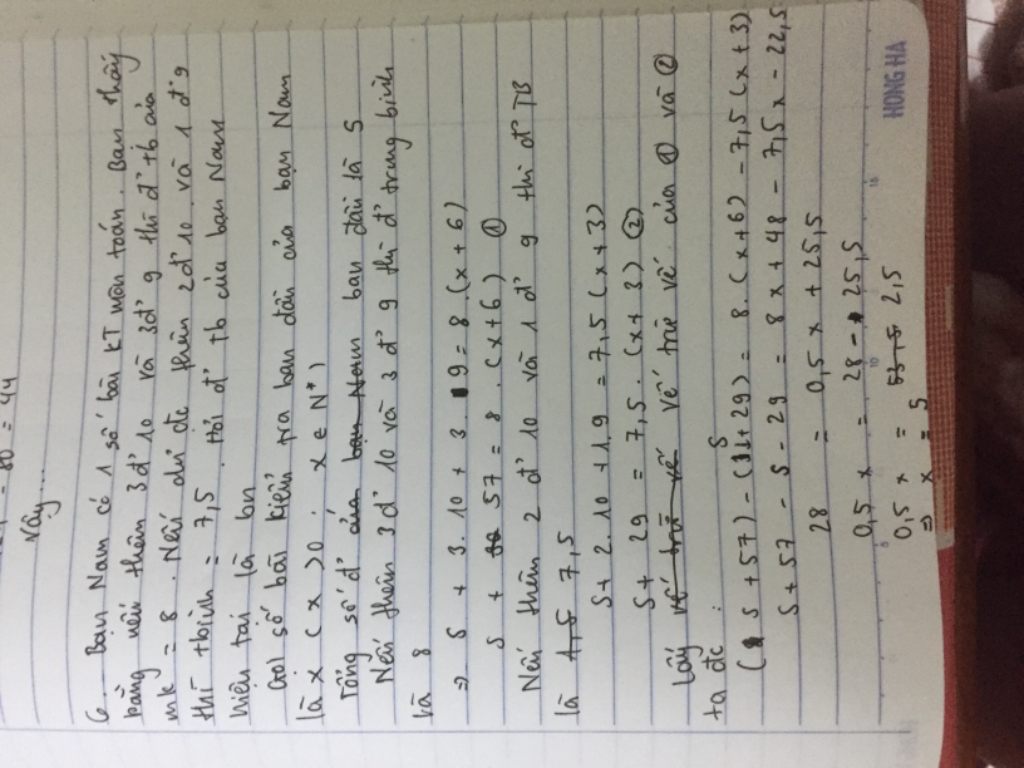 = 80 = 44
Vậy...
6. Bạn Nam có 1 số bài KT môn toán. Bạn thấy
rằng nếu thêm 3đ' 10 và 3đ' 9 thì đ' tb của
mk = 8. Nếu chỉ đc thêm 2đ' 10 và 1 đ' 9
thì tbình = 7,5. Hỏi đ' tb của bạn Nam
hiện tại là bn
Gọi số bài kiểm tra ban đầu của bạn Nam
là x (x > 0; x ∈ N*)
Tổng số đ' của bạn Nam ban đầu là S
Nếu thêm 3đ' 10 và 3 đ' 9 thì đ' trung bình
là 8
=> S + 3.10 + 3.9 = 8.(x+6)
S + 57 = 8.(x+6) ①
Nếu thêm 2 đ' 10 và 1 đ' 9 thì đ' TB
là 7,5
S + 2.10 + 1.9 = 7,5(x+3)
S + 29 = 7,5.(x+3) ②
Lấy vế trừ vế vế trừ vế của ① và ②
ta đc:
(S + 57) - (S + 29) = 8.(x+6) - 7,5(x+3)
S + 57 - S - 29 = 8x + 48 - 7,5x - 22,5
28 = 0,5x + 25,5
0,5x = 28 - 25,5
0,5x = 2,5
=> x = 5
HONG HA